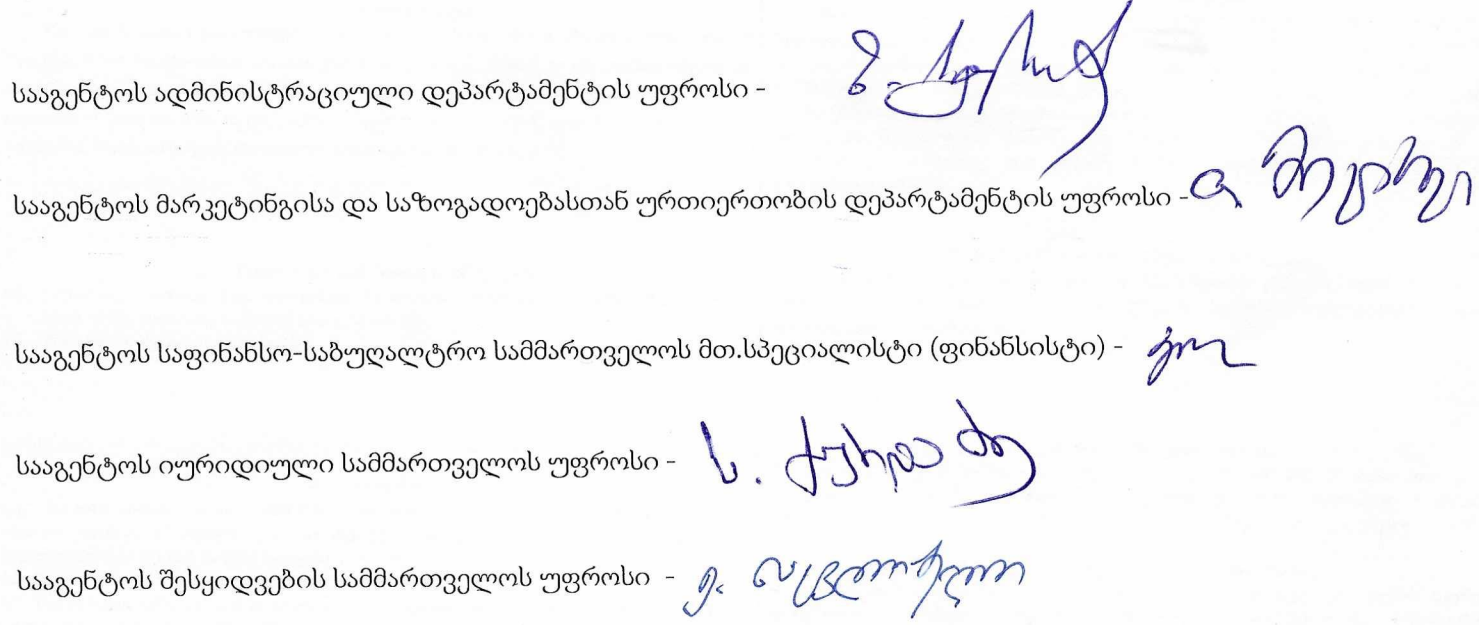 სააგენტოს ადმინისტრაციული დეპარტამენტის უფროსი -
სააგენტოს მარკეტინგისა და საზოგადოებასთან ურთიერთობის დეპარტამენტის უფროსი -
სააგენტოს საფინანსო-საბუღალტრო სამმართველოს მთ.სპეციალისტი (ფინანსისტი) -
სააგენტოს იურიდიული სამმართველოს უფროსი -
სააგენტოს შესყიდვების სამმართველოს უფროსი -